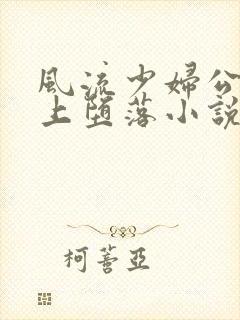 風流少婦公
上墮落小說
柯薏亞